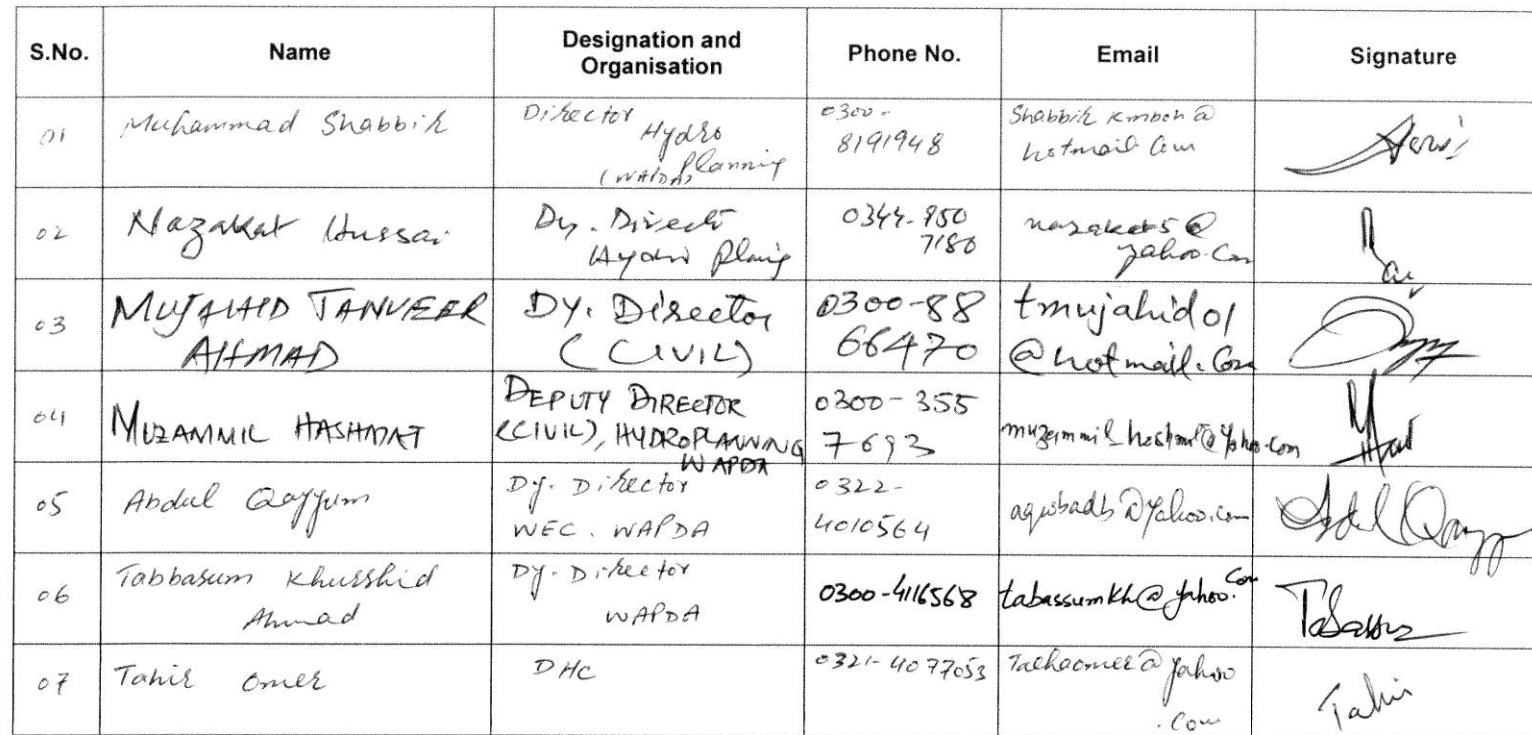 S.No. Name Designation and Organisation Phone No. Email Signature
01 Muhammad Shabbir Director Hydro Planning (WAPDA) 0300-8191948 Shabbir kmboh@hotmail.com
02 Nazakat Hussai Dy. Direct Hydro Planig 0344-950 7180 nazakat5@yahoo.com
03 MUJAHID TANVEER AHMAD DY. Director (CIVIL) 0300-88 66470 tmujahid01@hotmail.com
04 MUZAMMIL HASHMAT DEPUTY DIRECTOR (CIVIL), HYDROPLANNING WAPDA 0300-355 7693 @yahoo.com
05 Abdul Qayyum Dy. Director WEC. WAPDA 0322-4010564 @yahoo.com Abdul Qayyum
06 Tabbasum Khurshid Ahmad Dy. Director WAPDA 0300-4116568 tabassumkh@yahoo.com Tabassum
07 Tahir Omer DHC 0321-4077053 @yahoo.com Tahir